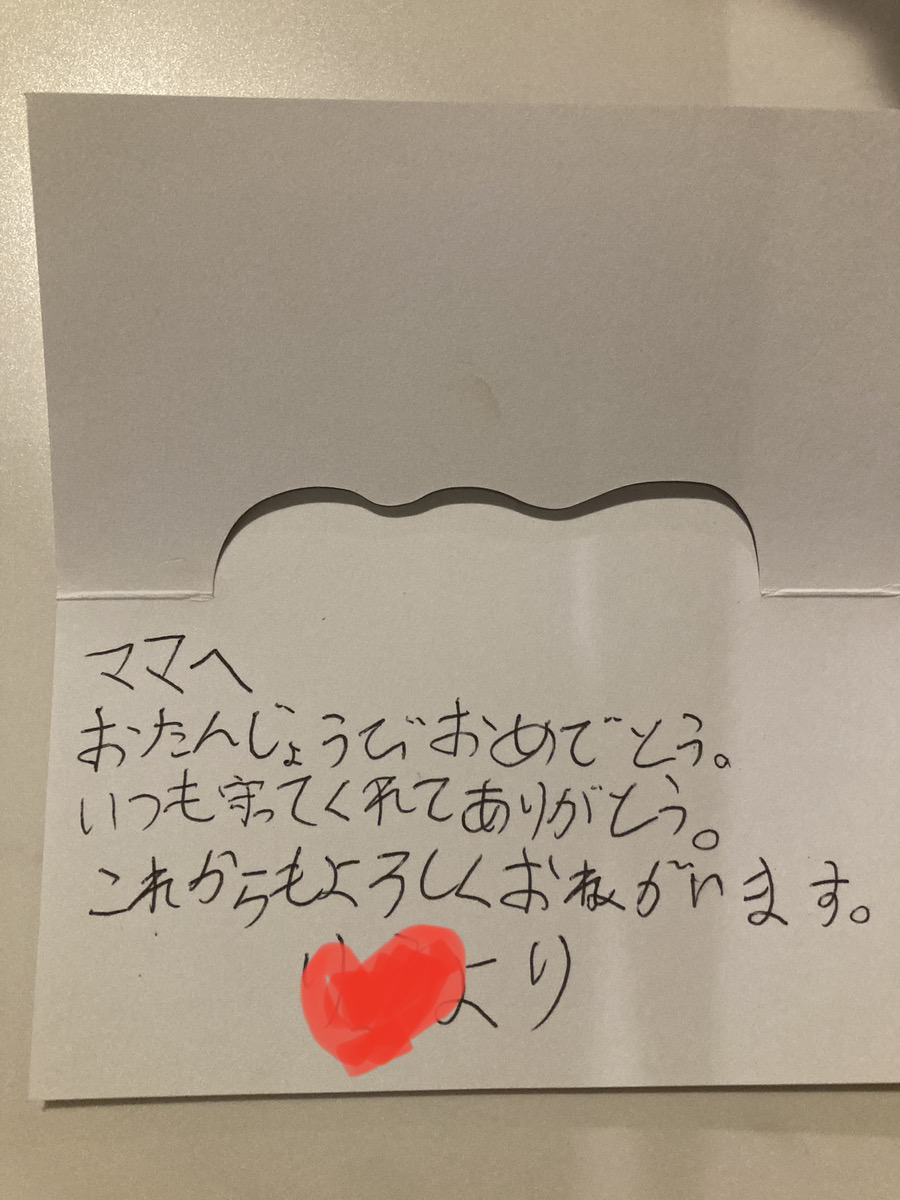 ママへ
おたんじょうびおめでとう。
いつも守ってくれてありがとう。
これからもよろしくおねがいします。
より